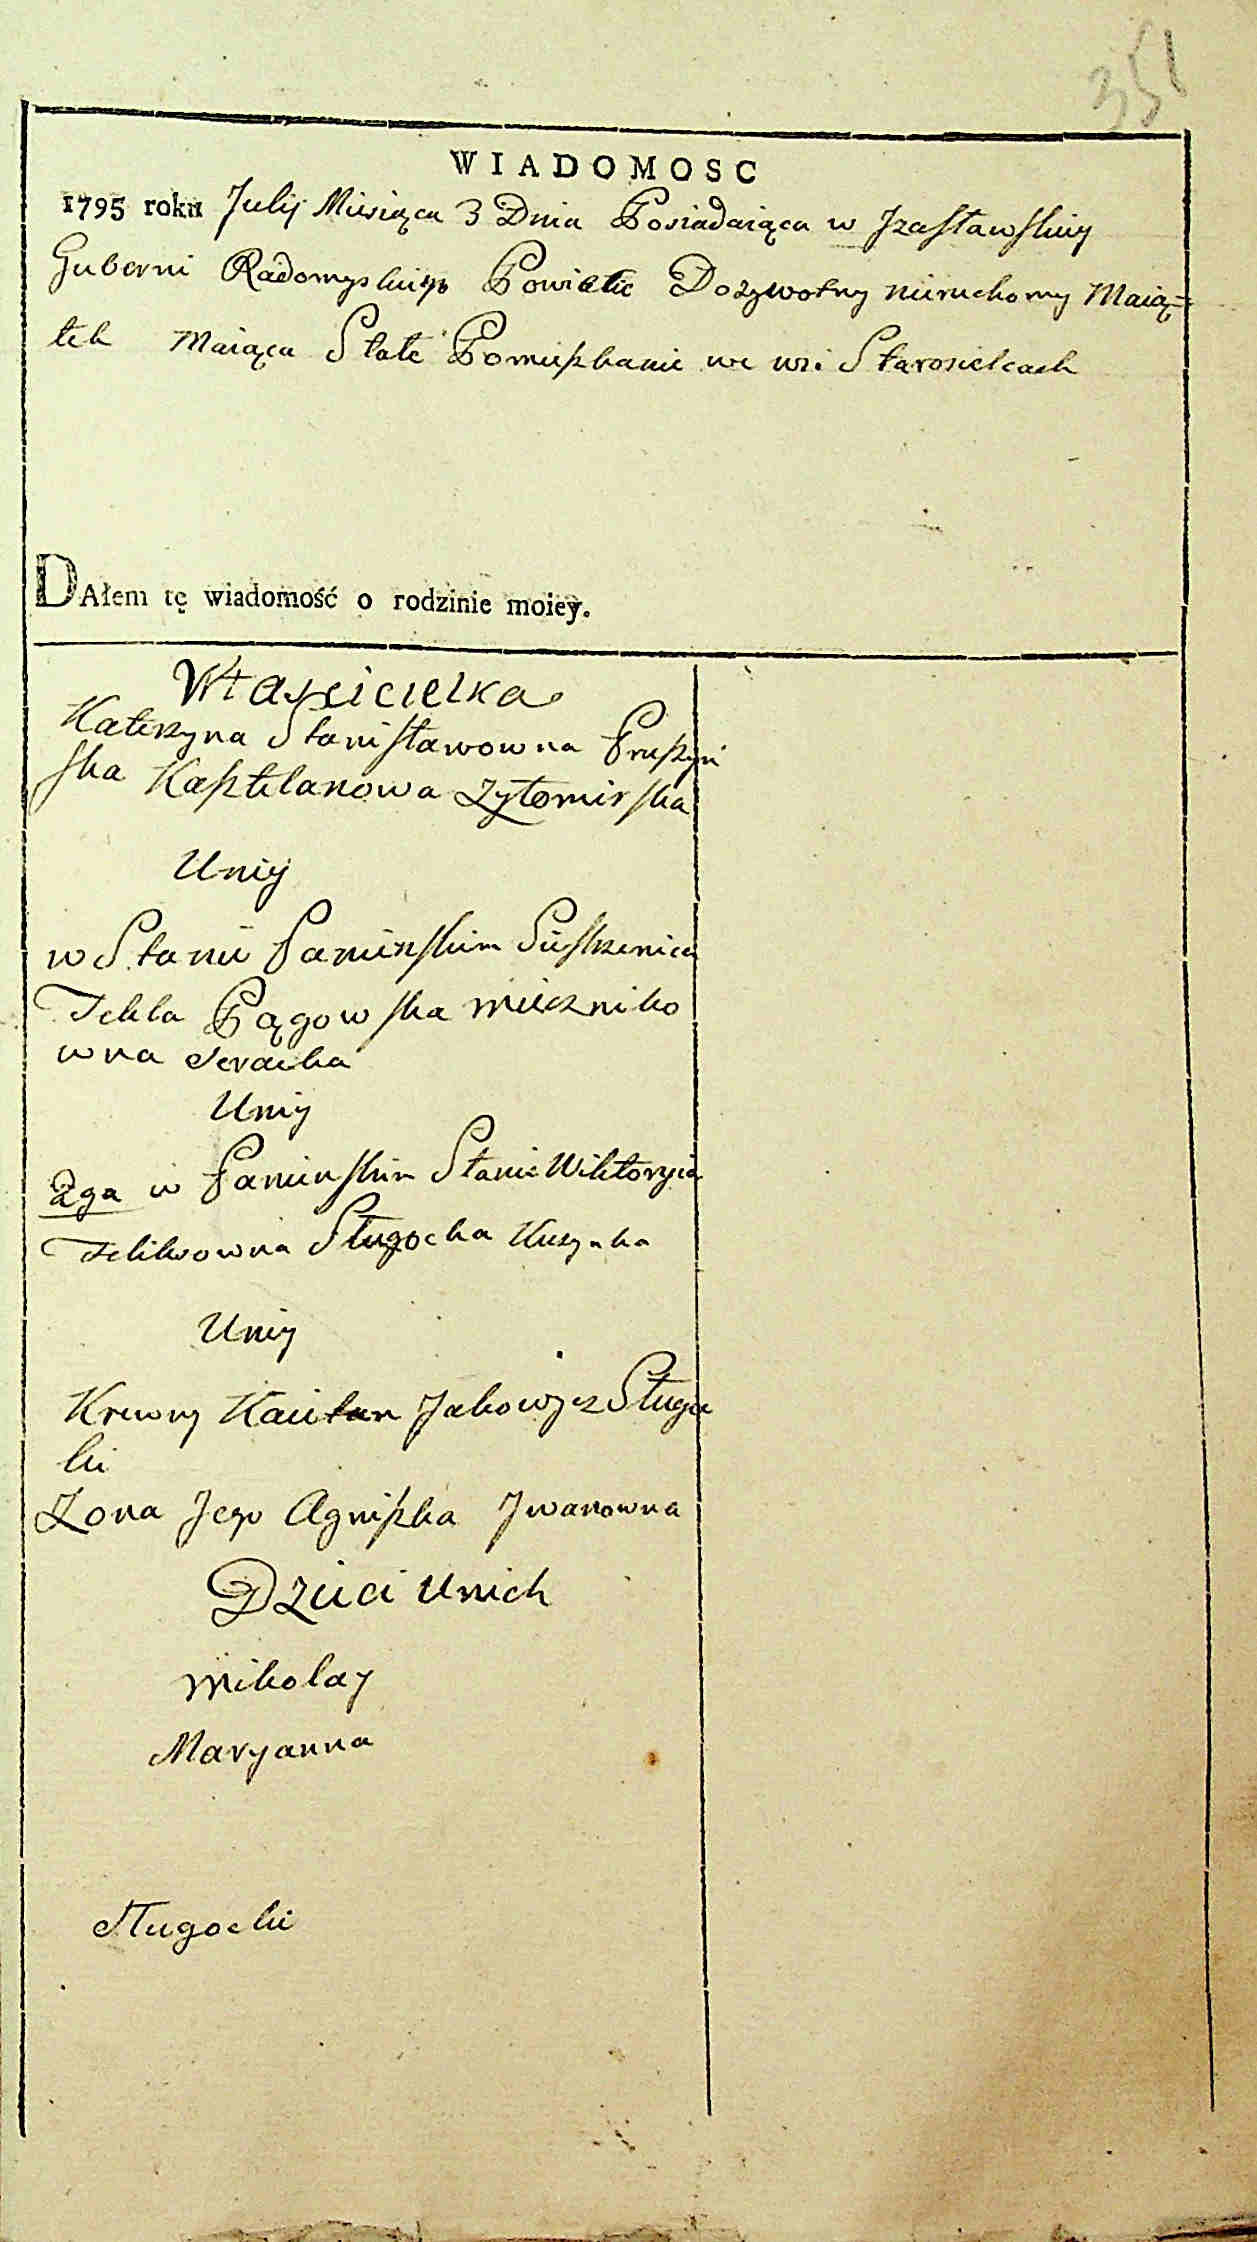 351
WIADOMOSC
1795 roku Julij Miesiąca 3 Dnia Posiadaiąca w Jzasławskiey
Guberni Radomyskiego Powiecie Dożywotny nieruchomy Maią=
tek Maiąca Stałe Pomieszkanie we wsi Starosielcach
DAłem tę wiadomość o rodzinie moiey.
Właścicielka
Katerzyna Stanisławowna Pruszyń
ska Kasztelanowa Zytomirska
Uniy
w Stanie Panienskim Siestrzenica
Tekla Pągowska mieczniko
wna
Uniy
2ga w Panienskim Stanie Wiktoryia
Felixowna Sługocka Kuzynka
Uniy
Krewny Kaietan Jakowicz Sługo
cki
Zona Jego Agniszka Jwanowna
Dzieci Unich
Mikolay
Maryanna
Sługocki